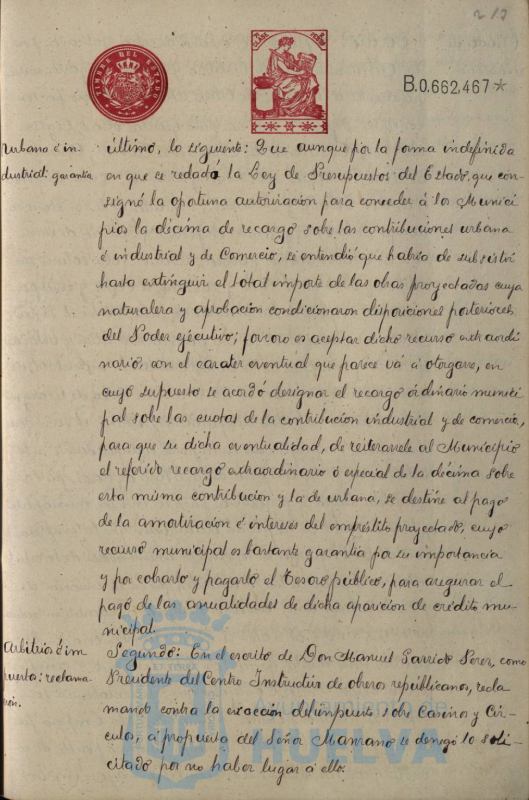 217
TIMBRE DEL ESTADO
B.0.662,467*
urbano é in
dustrial: garantía
último, lo siguiente: Que aunque por la forma indefinida
en que se redadó la Ley de Presupuestos del Estado, que con-
signó la oportuna autorización para conceder á los Munici
pios la décima de recargo sobre las contribuciones urbana
é industrial y de Comercio, se entendió que habria de subsistir
hasta extinguir el total importe de las obras proyectadas cuya
naturaleza y aprobación condicionaron disposiciones posteriores
del Poder ejecutivo; forzoso es aceptar dicho recurso extraordi
nario, con el carater eventual que parece vá á otorgarse, en
cuyo supuesto se acordó designar el recargo órdinario munici
pal sobre las cuotas de la contribucion industrial y de comercio,
para que su dicha eventualidad, de reiterarsele al Municipio
el referido recargo extraordinario ó especial de la décima sobre
esta misma contribucion y la de urbana, se destine al pago
de la amortización é interés del empréstito proyectado, cuyo
recurso municipal es bastante garantía por su importancia
y por cobrarlo y pagarlo el Tesoro público, para asegurar el
pago de las anualidades de dicha aparicion de crédito mu-
nicipal.
Arbitrios é im
puestos: reclama
ción.
Segundo: En el escrito de Don Manuel Garrido Perez, como
Presidente del Centro Instructivo de obreros republicanos, recla
mando contra la exacción del impuesto sobre Casinos y Cír-
culos, á propuesta del Señor Manzano se denegó lo soli-
citado por no haber lugar á ello.
Ayuntamiento de
HUELVA